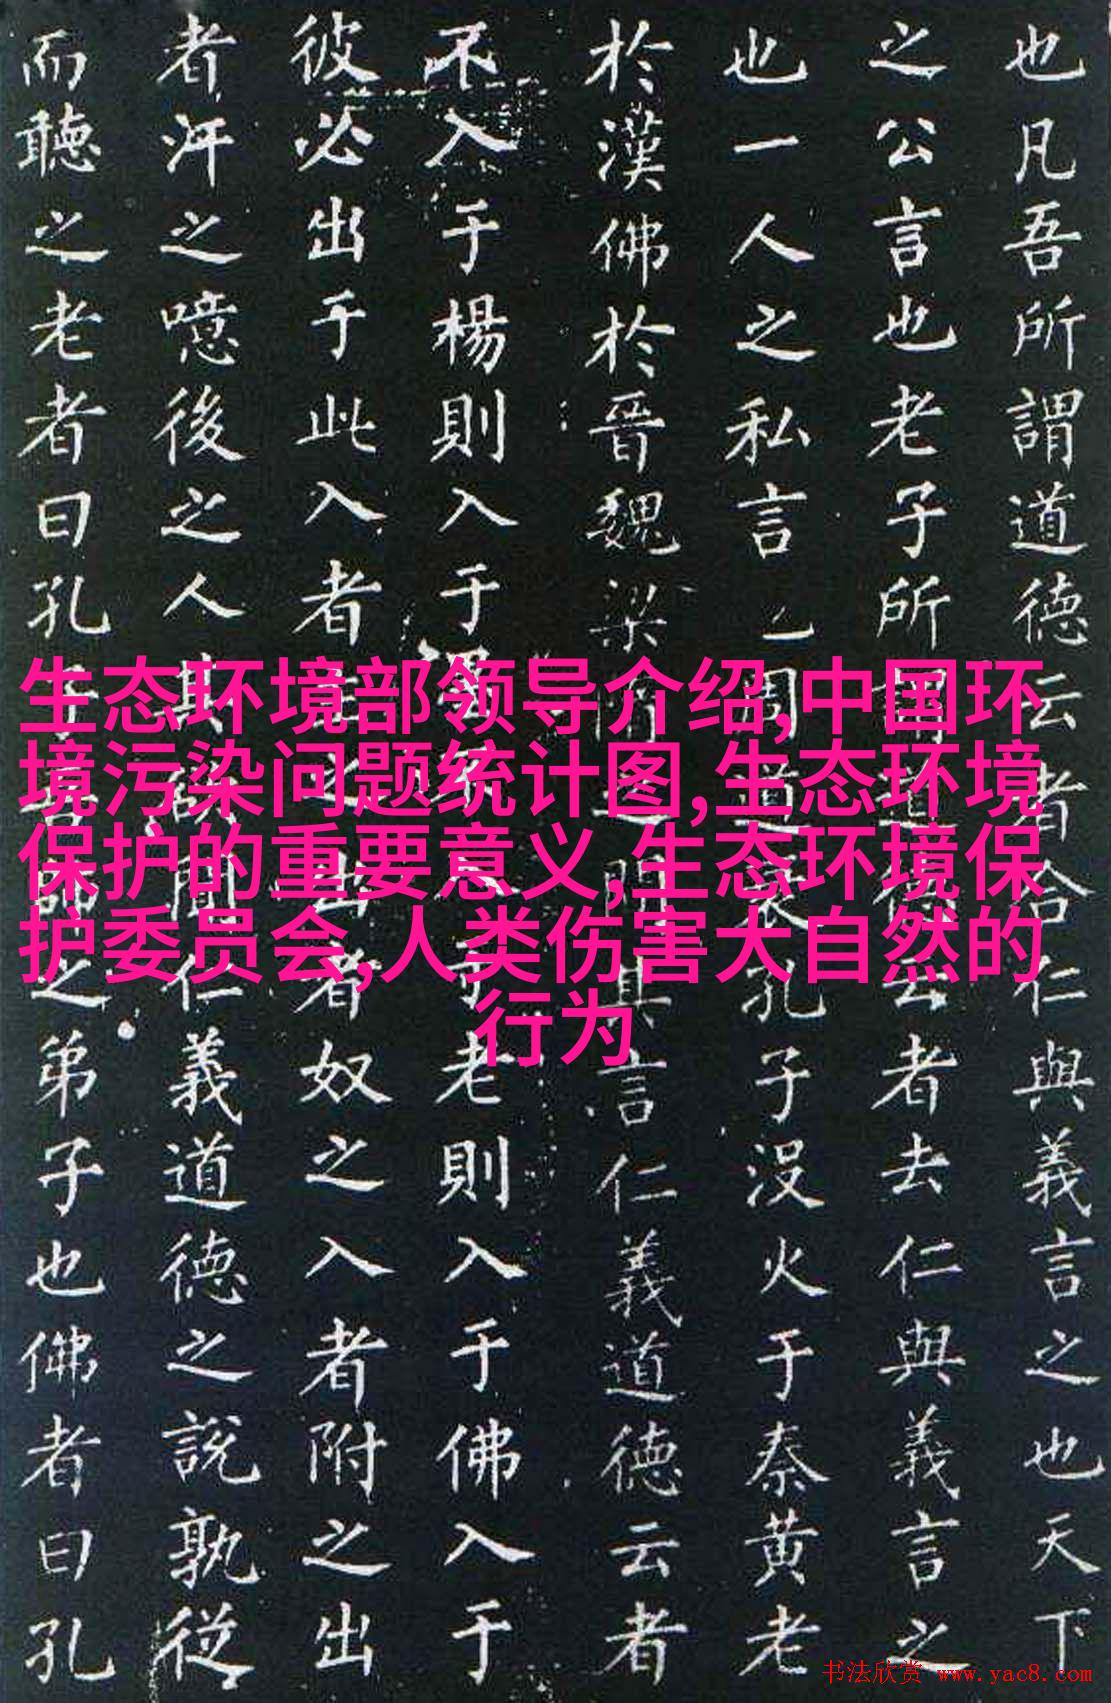 生态环境部领导介绍,中国环
境污染问题统计图,生态环境
保护的重要意义,生态环境保
护委员会,人类伤害大自然的
行为
也凡吾所謂道德云者合仁與義言之也天下
之公言也老子所謂道德云者去仁與義言之
也一人之私言也周道衰孔子没火于秦黄老
於漢佛於晉魏梁隋之間其言仁義道德云者
不入于楊則入于老則入于佛入于
彼必出于此入者出者奴之入者附之出
者汙之噫後之人其欲聞仁義道德之說孰從
而聽之老者曰孔子吾師之弟子也佛者曰孔
书法欣赏 www.yac8.com